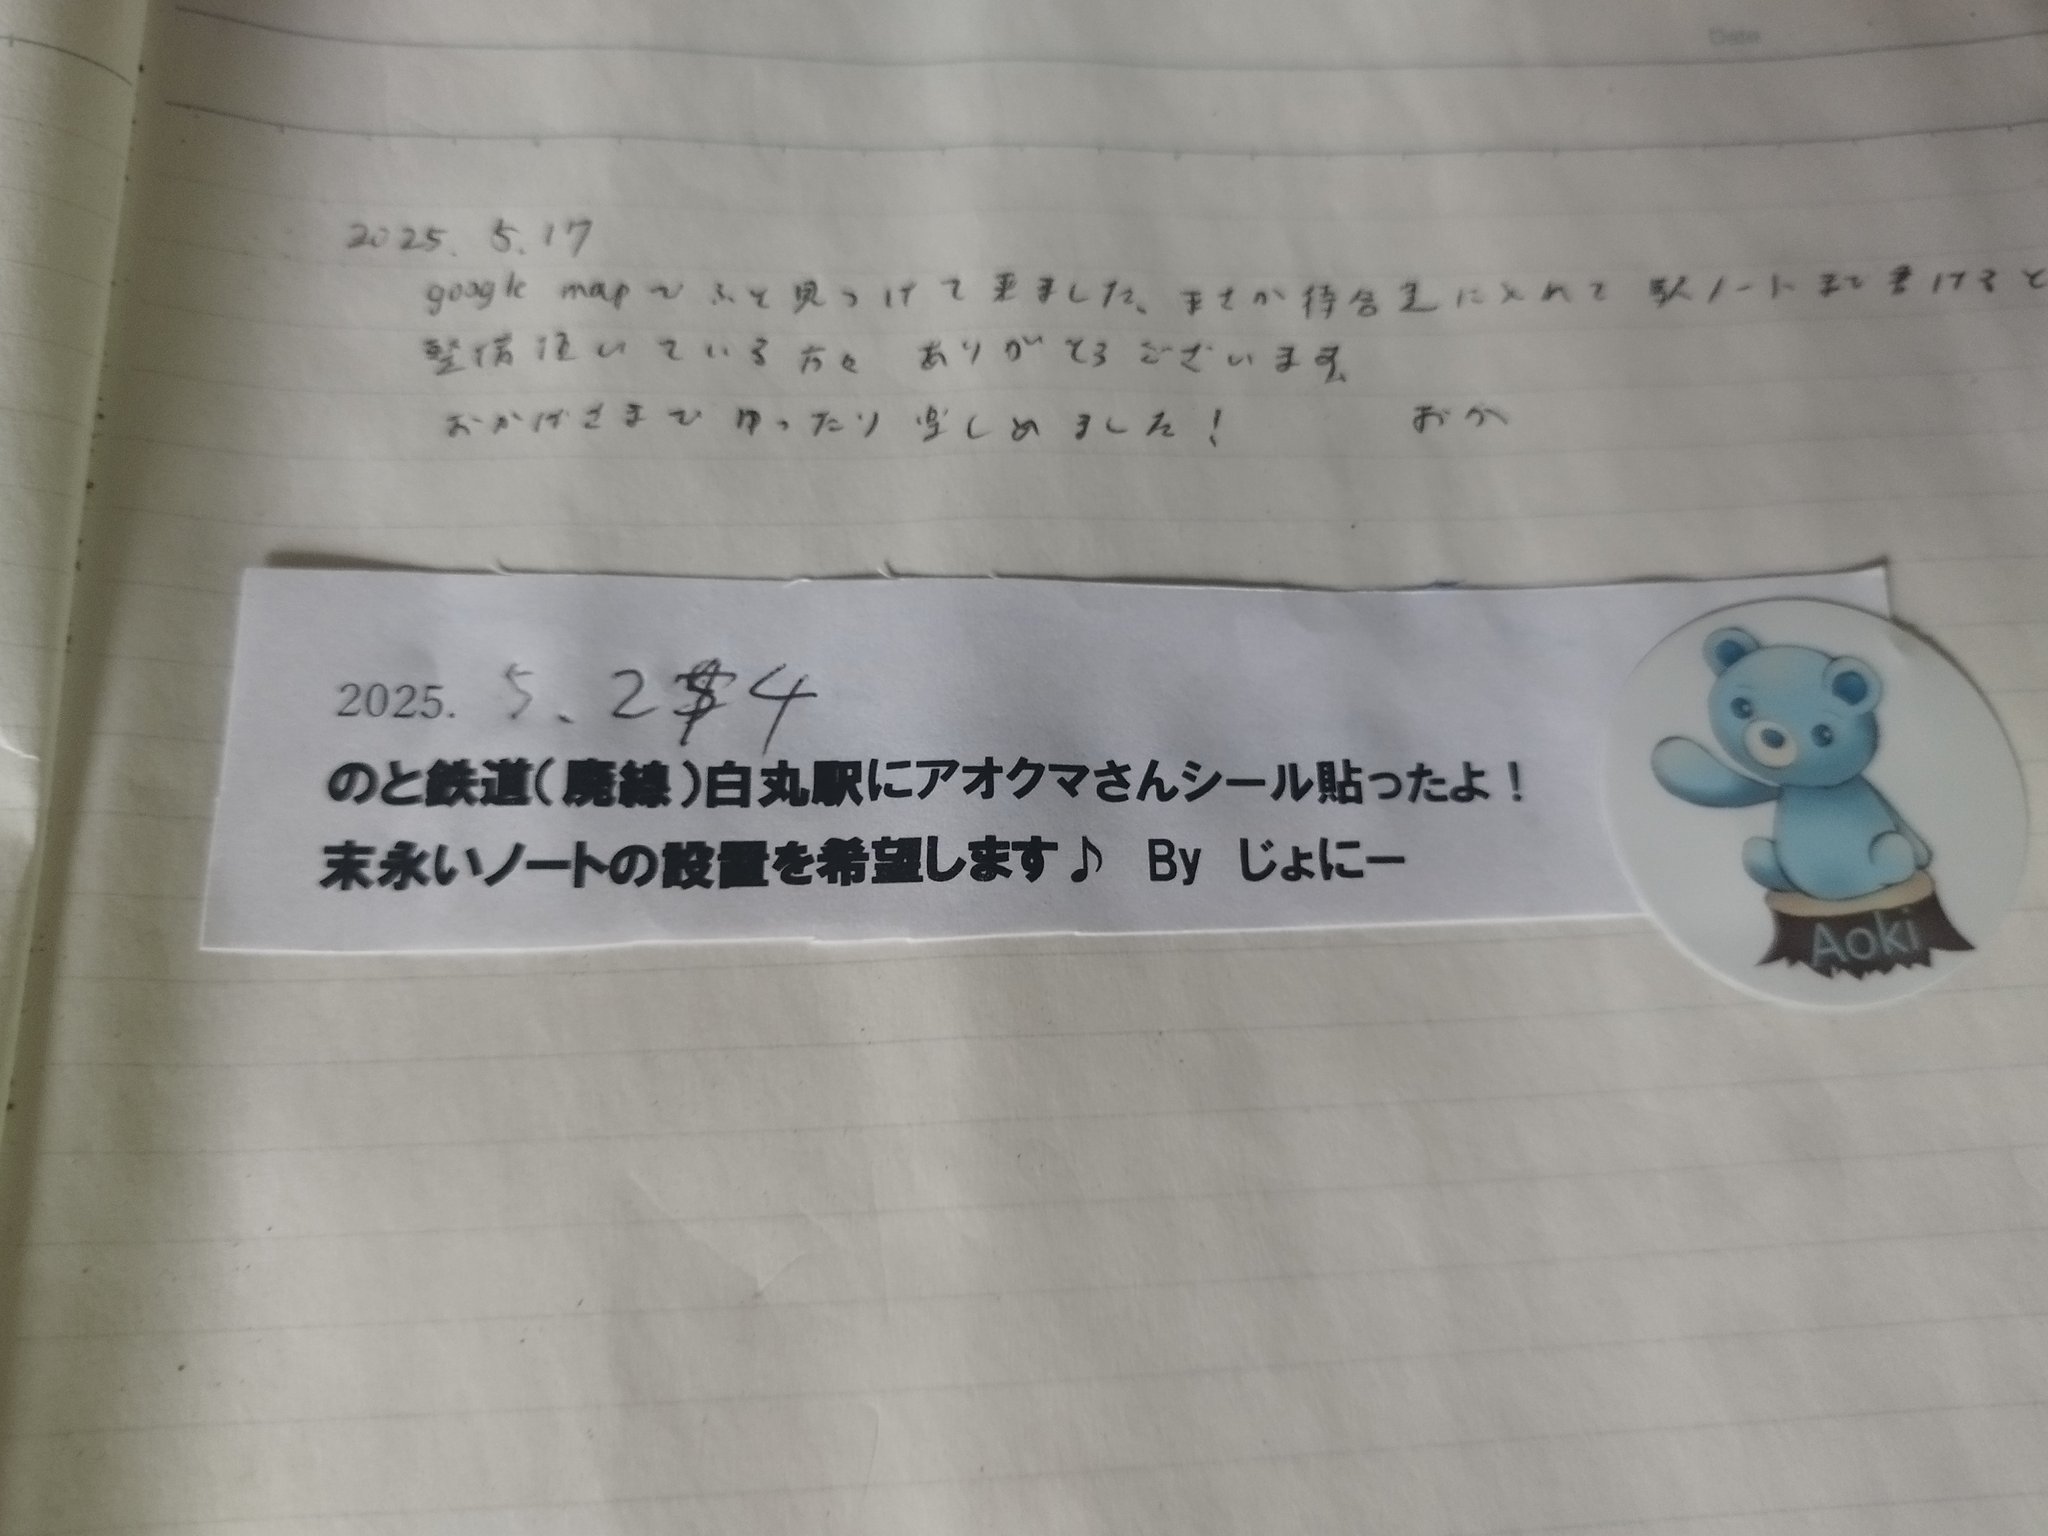 Date
2025. 5. 17
google mapでふと見つけて来ました、まさか待合室に入れて 駅ノートまで書けると
整備頂いている方々 ありがとうございます。
おかげさまで ゆったり楽しめました! おか
2025. 5. 24
のと鉄道(廃線)白丸駅にアオクマさんシール貼ったよ!
末永いノートの設置を希望します♪ By じょにー
Aoki